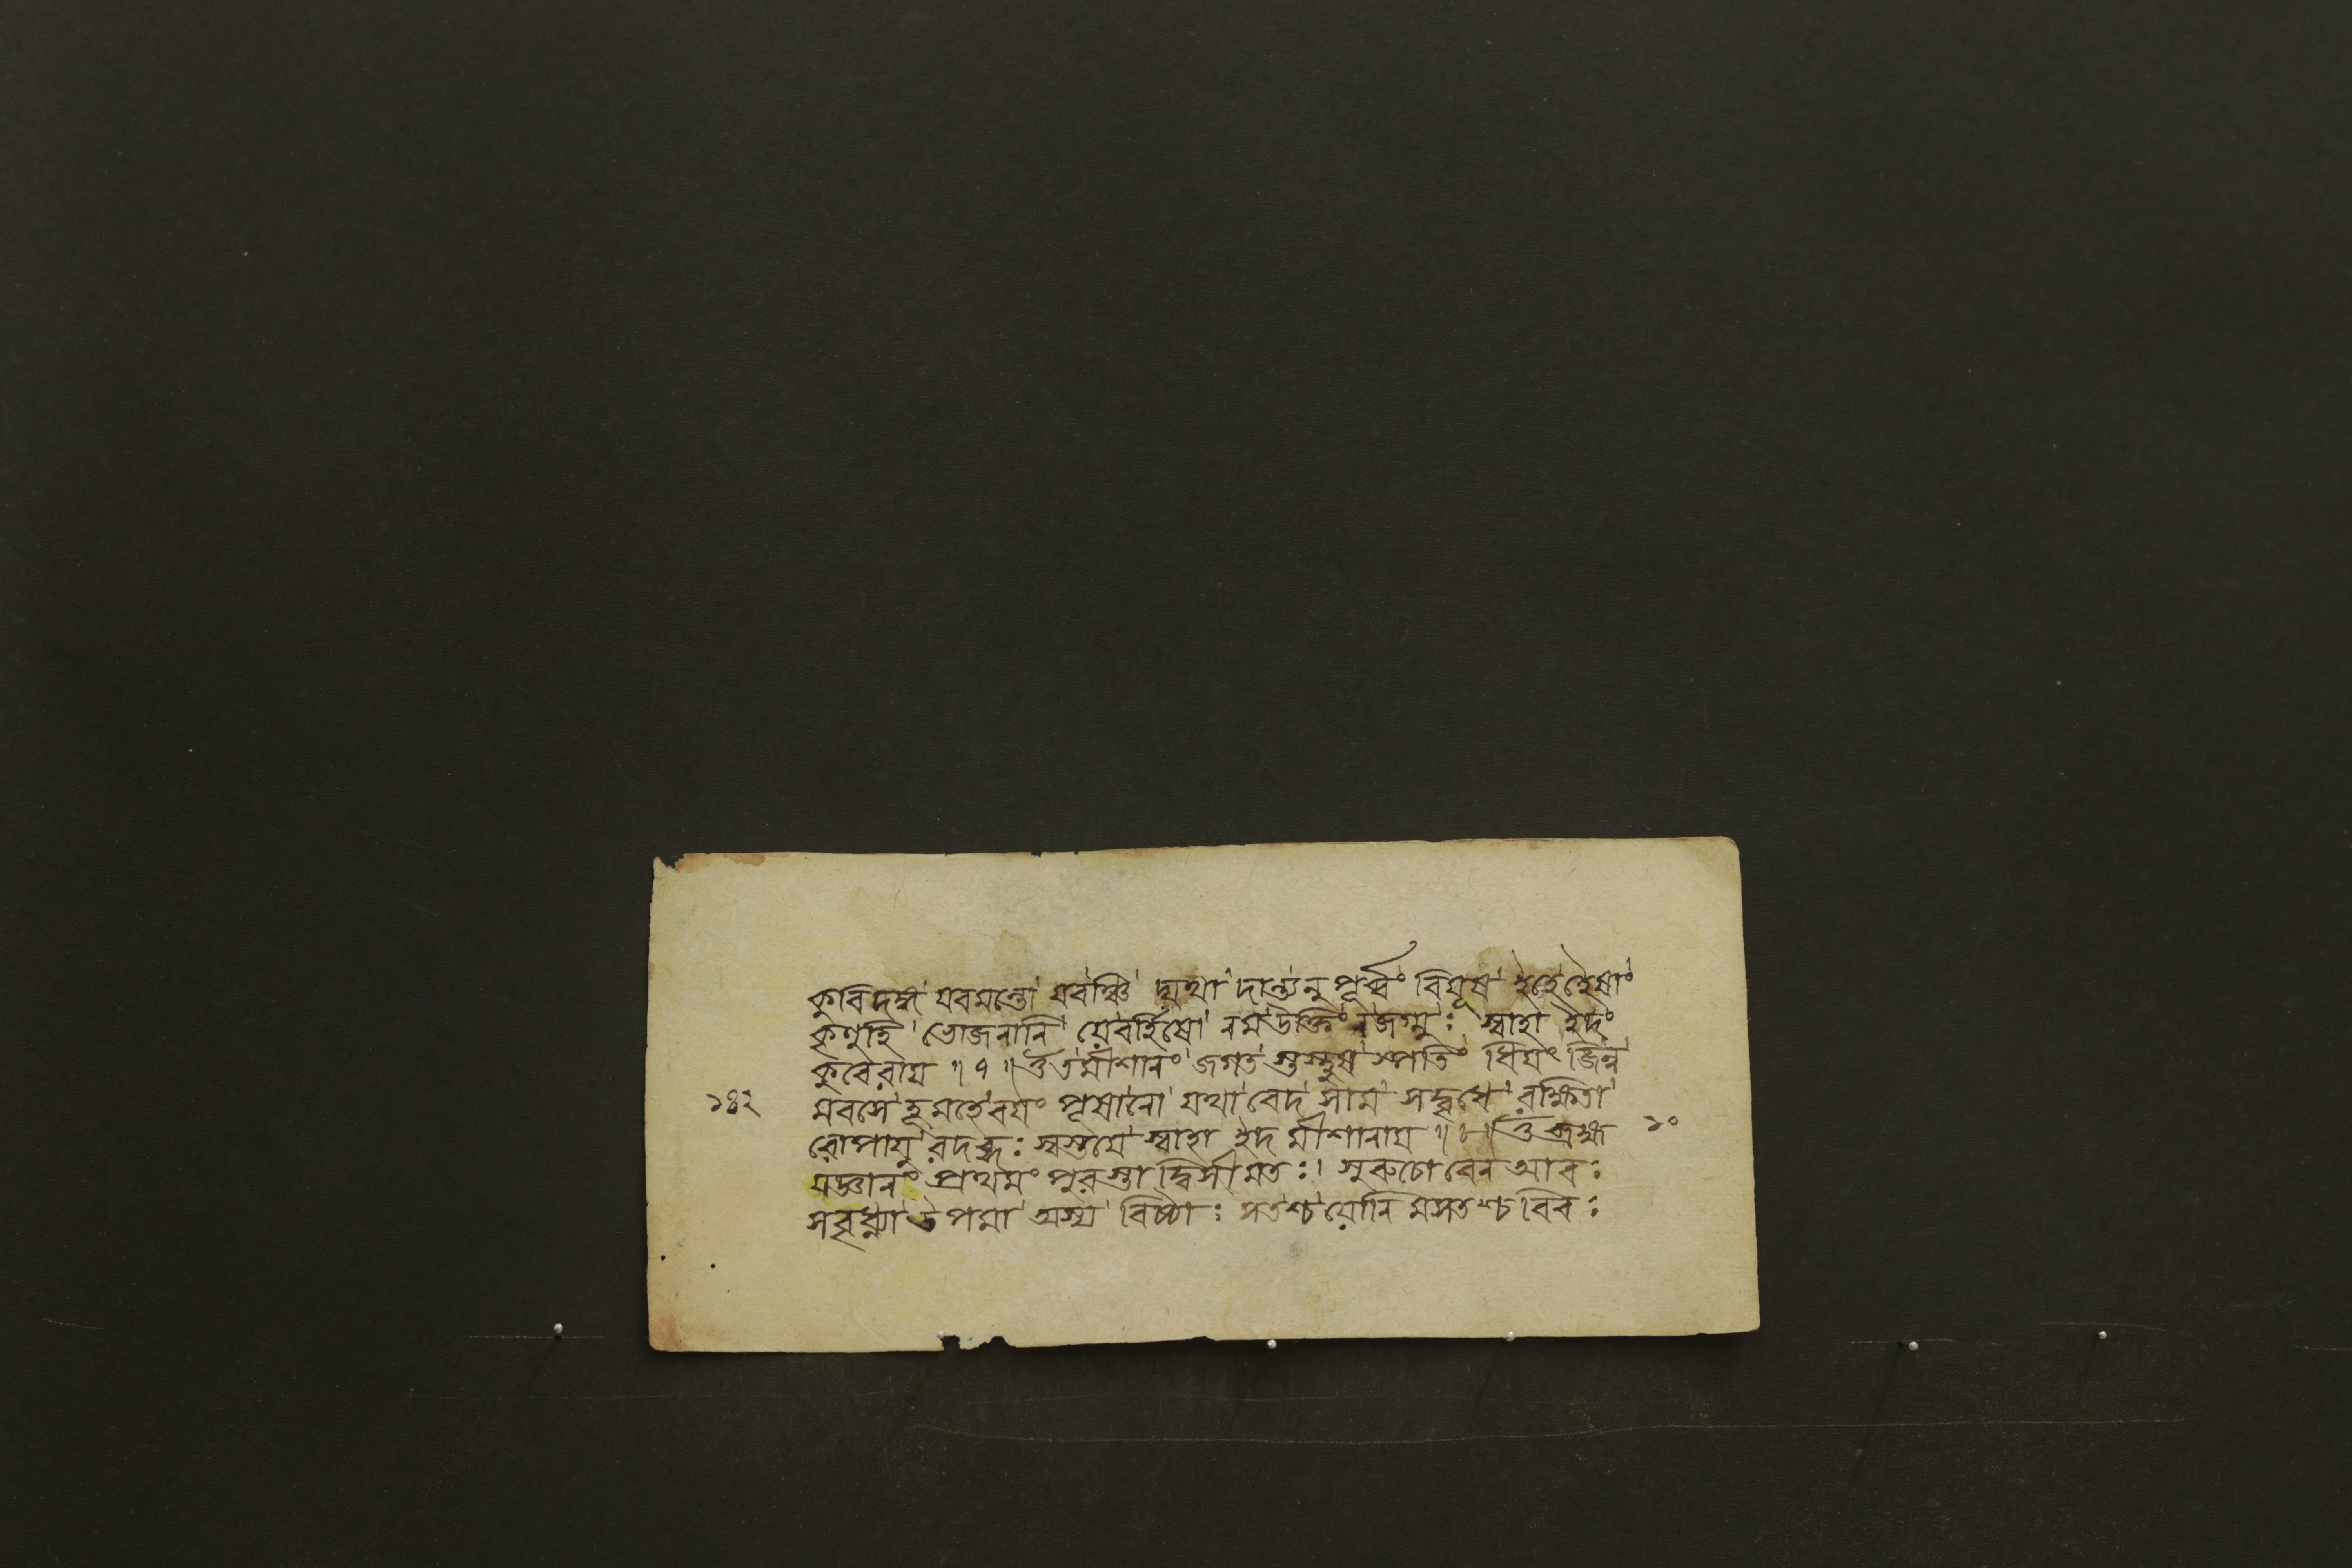 কুবিদঙ্গ যবমন্তো যবঞ্চি দ্যথা দান্ত্যনু পূর্ব্বং বিযূয ইহেহৈষাং
কৃণুহি ভোজনানি যেবর্হিষো নমউক্তিং নজগ্মুঃ স্বাহা ইদং
কুবেরায ॥ ৭ ॥ ওঁ তমীশানং জগত স্তস্থুষ স্পতিং ধিযং জিন্ব
১৪২ মবসে হূমহেবযং পূষানো যথা বেদ সাম সদ্বৃধে রক্ষিতা
রোপাযু রদব্ধঃ স্বস্তযে স্বাহা ইদ মীশানায ॥ ৮ ॥ ওঁ ব্রহ্ম ১০
যজ্ঞানং প্রথমং পুরস্তা দ্বিসীমতঃ। সুরুচোবেন আবঃ
সবুধ্ন্যা উপমা অস্য বিষ্ঠাঃ সতশ্চযোনি মসতশ্চ বিবঃ